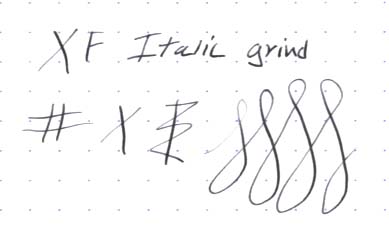 XF Italic grind
# X